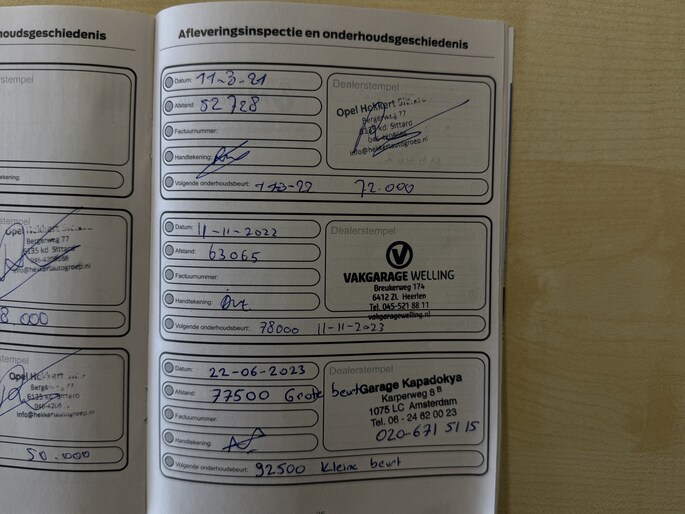 houdsgeschiedenis
stempel
kening:
stempel
Opel
Bergerweg 77
6135 kd Sittard
info@hekkertautogroep.nl
8.000
stempel
Opel
6135 kd Sittard
info@hekkertautogroep.nl
50.000
Afleveringsinspectie en onderhoudsgeschiedenis
Datum: 11-3-21
Dealerstempel
Afstand: 52728
Opel Hekkert Sittard
Bergerweg 77
6135 kd Sittard
Factuurnummer:
info@hekkertautogroep.nl
Handtekening:
Volgende onderhoudsbeurt: 72.000
Datum: 11-11-2022
Dealerstempel
Afstand: 63065
VAKGARAGE WELLING
Factuurnummer:
Breukerweg 174
6412 ZL Heerlen
Handtekening:
Tel. 045-521 88 11
vakgaragewelling.nl
Volgende onderhoudsbeurt: 78000 11-11-2023
Datum: 22-06-2023
Dealerstempel
Afstand: 77500 Grote beurt
Garage Kapadokya
Karperweg 8 B
Factuurnummer:
1075 LC Amsterdam
Tel. 06 - 24 62 00 23
Handtekening:
020-671 51 15
Volgende onderhoudsbeurt: 92500 Kleine beurt